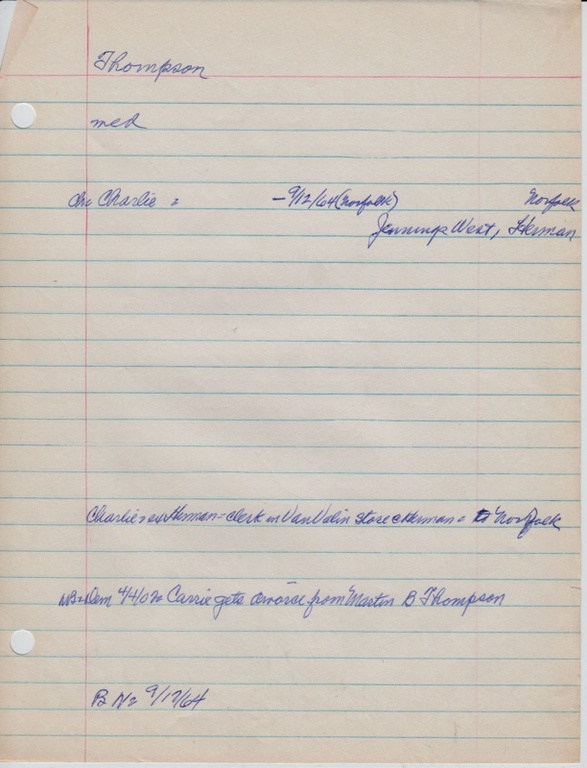 Thompson
med
ch= Charlie = - 9/12/64 (Norfolk) Norfolk
Jennings West, Herman
Charlie = ex Herman = clerk in Van Valin Store @ Herman = to Norfolk
NB = Dem 4/4/02 = Carrie gets divorce from Martin B Thompson
B N = 9/17/64